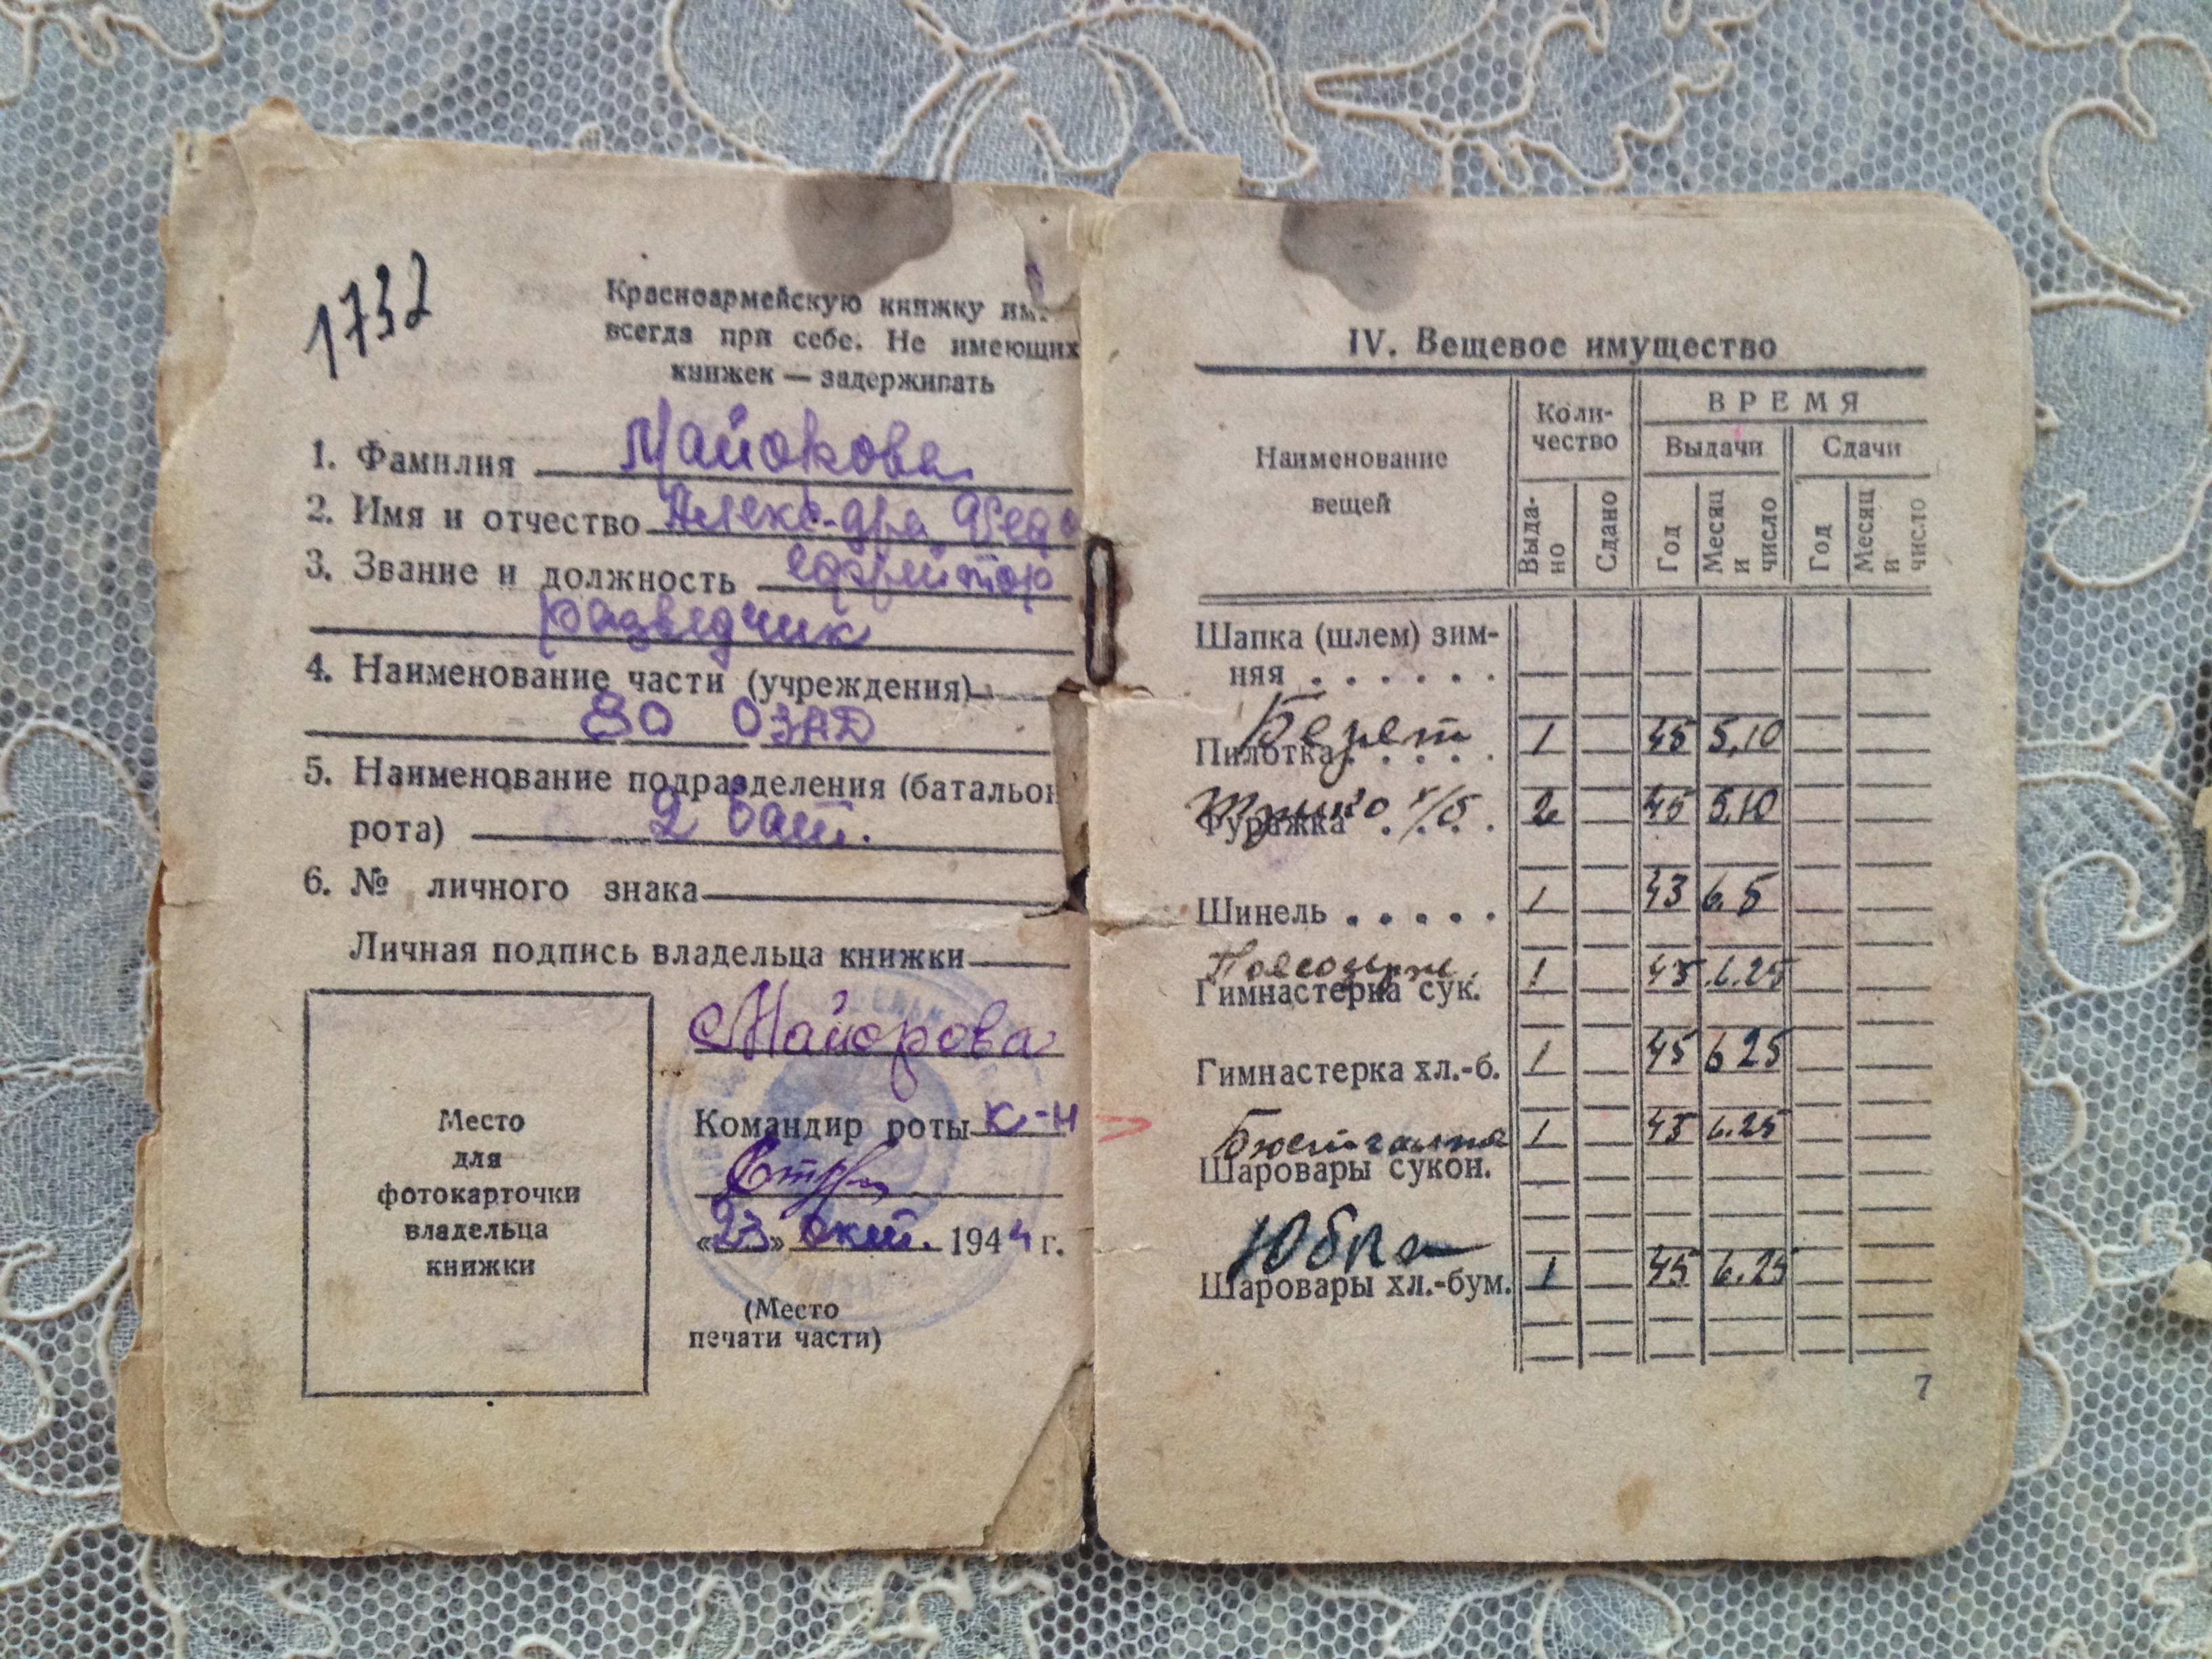 1732
Красноармейскую книжку им
всегда при себе. Не имеющих
книжек — задерживать
1. Фамилия Майорова
2. Имя и отчество Алекс-дра Федо
3. Звание и должность ефрейтор
разведчик
4. Наименование части (учреждения)
80 ОЗАД
5. Наименование подразделения (батальон
рота) 2 бат.
6. № личного знака
Личная подпись владельца книжки
Майорова
Командир роты к-н
«23» окт. 1944 г.
(Место
печати части)
Место
для
фотокарточки
владельца
книжки
IV. Вещевое имущество
Наименование
вещей
Коли-
чество
ВРЕМЯ
Выдачи Сдачи
Выда-
но
Сдано
Год
Месяц
и
число
Год
Месяц
и
число
Шапка (шлем) зим-
няя . . . . . .
Берет
Пилотка . . . . . 1 45 5,10
Трико х/б
Фуражка . . . . 2 45 5,10
Шинель . . . . . 1 43 6.5
Гимнастерка сук. 1 45 6.25
Гимнастерка хл.-б. 1 45 6 25
Бюстгалте
Шаровары сукон. 1 45 6.25
Юбка
Шаровары хл.-бум. 1 45 6.25
7